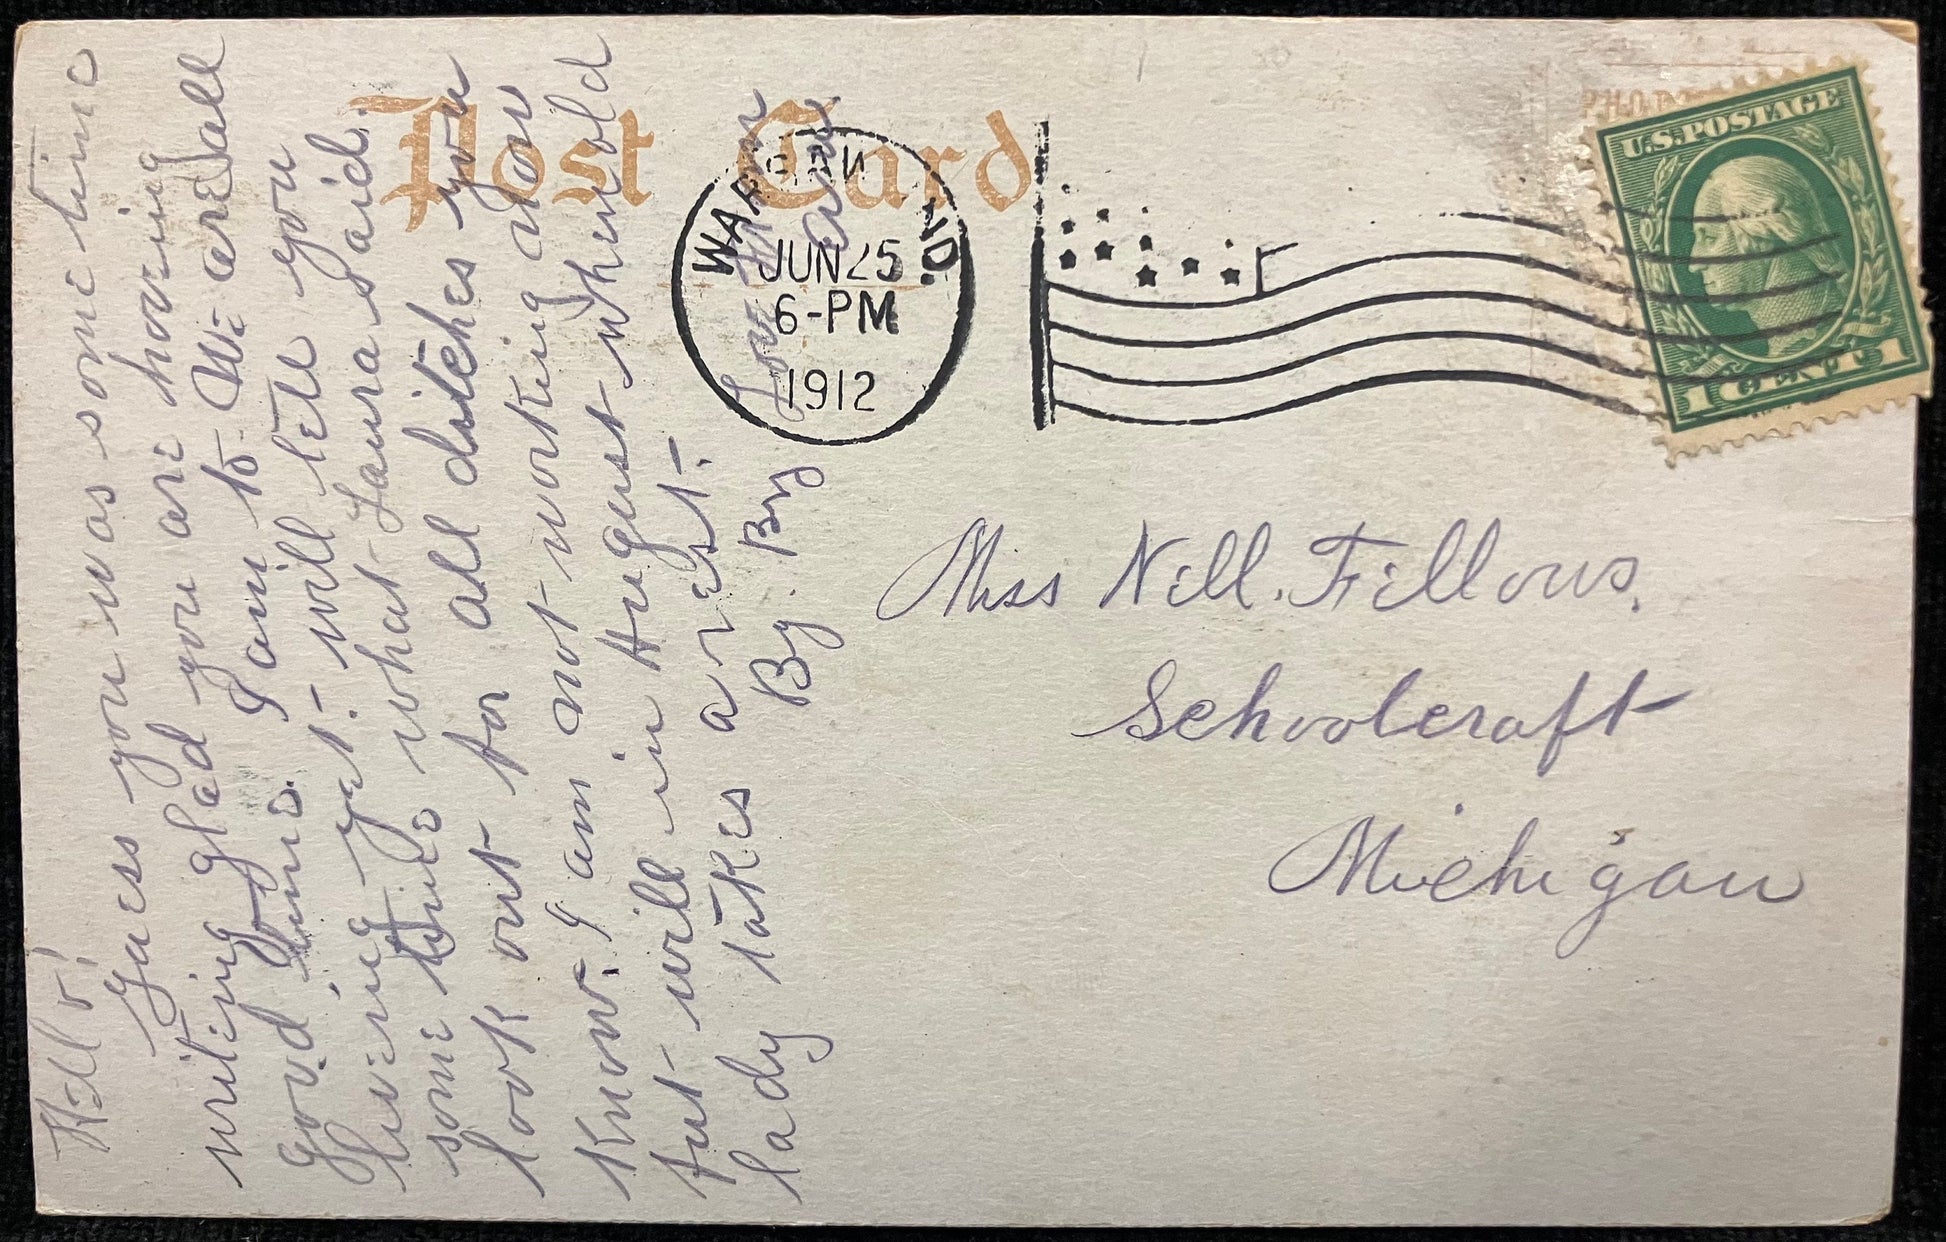 Post Card
WARREN IND.
JUN 25
6-PM
1912
U.S. POSTAGE
1 CENT 1
Hello!
Guess you was some time
writing glad you are having
good time. I am to. We are all
living yet. will tell you
some time what Laura said.
look out for all ditches you
know. I am not working now
but will in August when old
lady takes a rest.
By. By
Miss Nell. Fellows.
Schoolcraft
Michigan